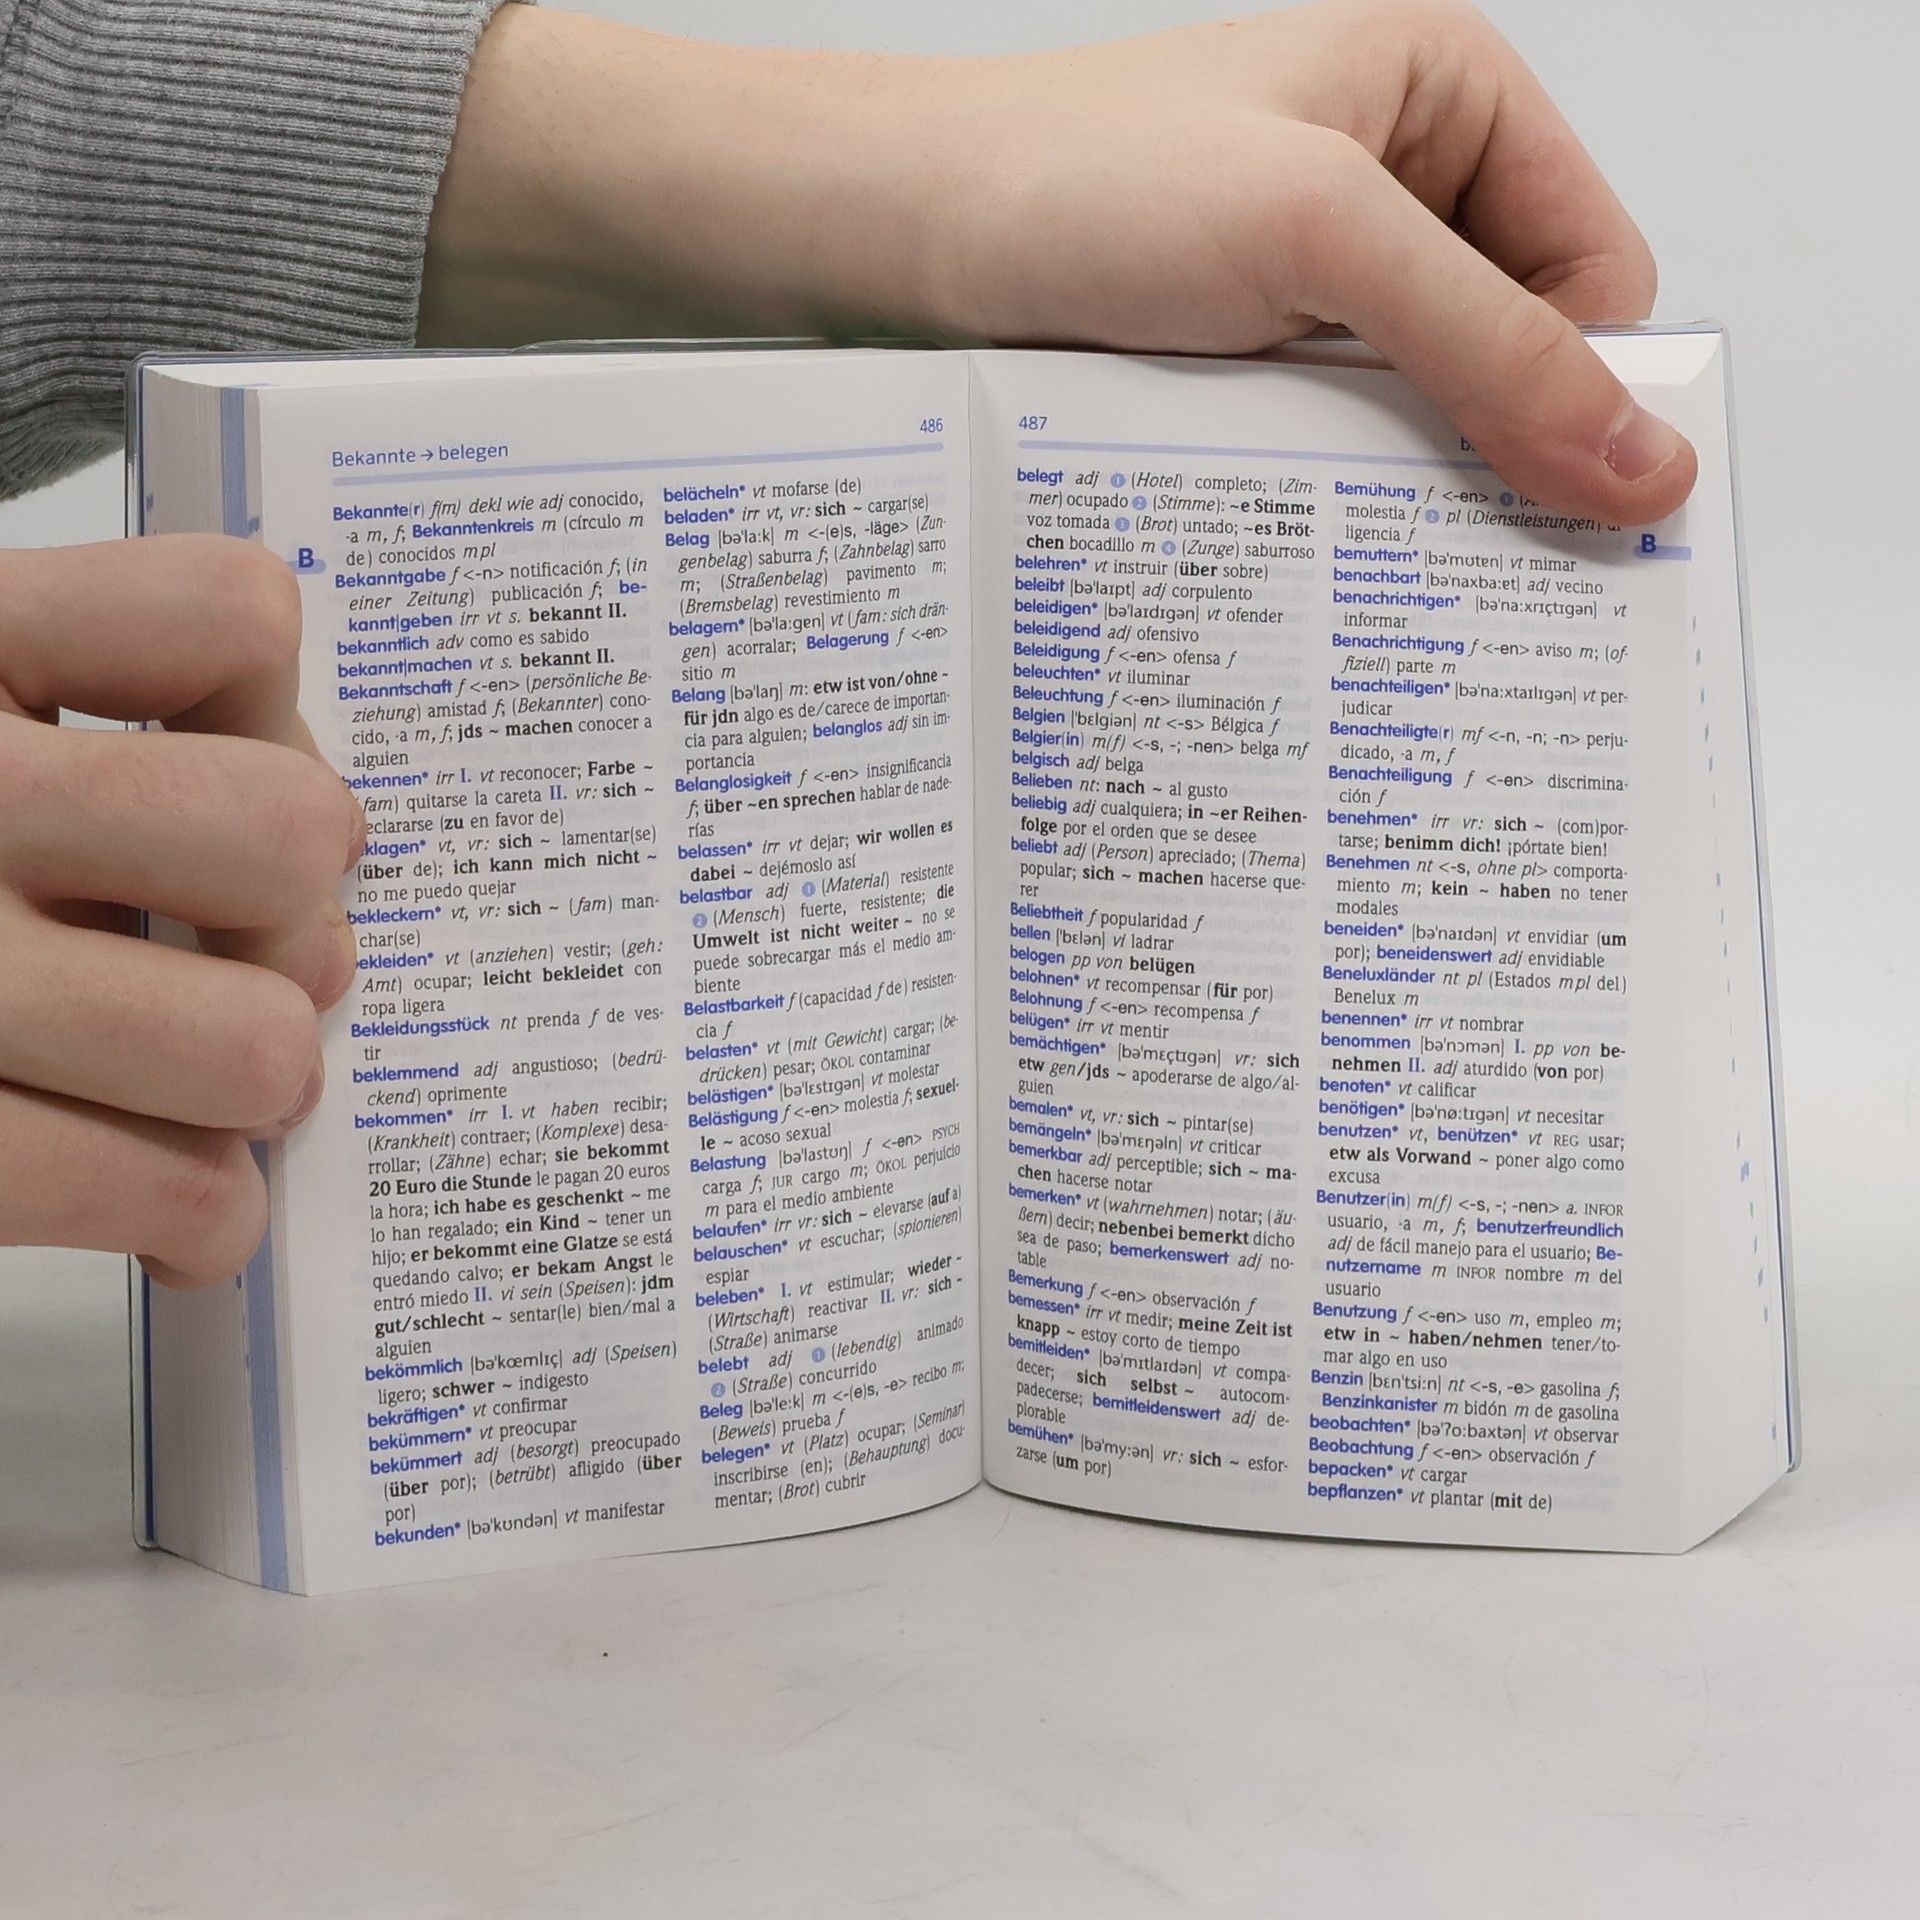 Bekannte → belegen
486
B
Bekannte(r) f(m) dekl wie adj conocido,
-a m, f; Bekanntenkreis m (círculo m
de) conocidos m pl
Bekanntgabe f <-n> notificación f; (in
einer Zeitung) publicación f; be-
kannt|geben irr vt s. bekannt II.
bekanntlich adv como es sabido
bekannt|machen vt s. bekannt II.
Bekanntschaft f <-en> (persönliche Be-
ziehung) amistad f; (Bekannter) cono-
cido, -a m, f; jds ~ machen conocer a
alguien
bekennen* irr I. vt reconocer; Farbe ~
fam) quitarse la careta II. vr: sich ~
eclararse (zu en favor de)
klagen* vt, vr: sich ~ lamentar(se)
(über de); ich kann mich nicht ~
no me puedo quejar
bekleckern* vt, vr: sich ~ (fam) man-
char(se)
ekleiden* vt (anziehen) vestir; (geh:
Amt) ocupar; leicht bekleidet con
ropa ligera
Bekleidungsstück nt prenda f de ves-
tir
beklemmend adj angustioso; (bedrü-
ckend) oprimente
bekommen* irr I. vt haben recibir;
(Krankheit) contraer; (Komplexe) desa-
rrollar; (Zähne) echar; sie bekommt
20 Euro die Stunde le pagan 20 euros
la hora; ich habe es geschenkt ~ me
lo han regalado; ein Kind ~ tener un
hijo; er bekommt eine Glatze se está
quedando calvo; er bekam Angst le
entró miedo II. vi sein (Speisen): jdm
gut/schlecht ~ sentar(le) bien/mal a
alguien
bekömmlich [bə'kœmlɪç] adj (Speisen)
ligero; schwer ~ indigesto
bekräftigen* vt confirmar
bekümmern* vt preocupar
bekümmert adj (besorgt) preocupado
(über por); (betrübt) afligido (über
por)
bekunden* [bə'kʊndən] vt manifestar
belächeln* vt mofarse (de)
beladen* irr vt, vr: sich ~ cargar(se)
Belag [bə'la:k] m <-(e)s, -läge> (Zun-
genbelag) saburra f; (Zahnbelag) sarro
m; (Straßenbelag) pavimento m;
(Bremsbelag) revestimiento m
belagern* [bə'la:gɐn] vt (fam: sich drän-
gen) acorralar; Belagerung f <-en>
sitio m
Belang [bə'laŋ] m: etw ist von/ohne ~
für jdn algo es de/carece de importan-
cia para alguien; belanglos adj sin im-
portancia
Belanglosigkeit f <-en> insignificancia
f; über ~en sprechen hablar de nade-
rías
belassen* irr vt dejar; wir wollen es
dabei ~ dejémoslo así
belastbar adj 1 (Material) resistente
2 (Mensch) fuerte, resistente; die
Umwelt ist nicht weiter ~ no se
puede sobrecargar más el medio am-
biente
Belastbarkeit f (capacidad f de) resisten-
cia f
belasten* vt (mit Gewicht) cargar; (be-
drücken) pesar; ÖKOL contaminar
belästigen* [bə'lɛstɪgən] vt molestar
Belästigung f <-en> molestia f; sexuel-
le ~ acoso sexual
Belastung [bə'lastʊŋ] f <-en> PSYCH
carga f; JUR cargo m; ÖKOL perjuicio
m para el medio ambiente
belaufen* irr vr: sich ~ elevarse (auf a)
belauschen* vt escuchar; (spionieren)
espiar
beleben* I. vt estimular; wieder ~
(Wirtschaft) reactivar II. vr: sich ~
(Straße) animarse
belebt adj 1 (lebendig) animado
2 (Straße) concurrido
Beleg [bə'le:k] m <-(e)s, -e> recibo m;
(Beweis) prueba f
belegen* vt (Platz) ocupar; (Seminar)
inscribirse (en); (Behauptung) docu-
mentar; (Brot) cubrir
487
B
belegt adj 1 (Hotel) completo; (Zim-
mer) ocupado 2 (Stimme): ~e Stimme
voz tomada 3 (Brot) untado; ~es Bröt-
chen bocadillo m 4 (Zunge) saburroso
belehren* vt instruir (über sobre)
beleibt [bə'laɪpt] adj corpulento
beleidigen* [bə'laɪdɪgən] vt ofender
beleidigend adj ofensivo
Beleidigung f <-en> ofensa f
beleuchten* vt iluminar
Beleuchtung f <-en> iluminación f
Belgien ['bɛlgiən] nt <-s> Bélgica f
Belgier(in) m(f) <-s, -; -nen> belga mf
belgisch adj belga
Belieben nt: nach ~ al gusto
beliebig adj cualquiera; in ~er Reihen-
folge por el orden que se desee
beliebt adj (Person) apreciado; (Thema)
popular; sich ~ machen hacerse que-
rer
Beliebtheit f popularidad f
bellen ['bɛlən] vi ladrar
belogen pp von belügen
belohnen* vt recompensar (für por)
Belohnung f <-en> recompensa f
belügen* irr vt mentir
bemächtigen* [bə'mɛçtɪgən] vr: sich
etw gen/jds ~ apoderarse de algo/al-
guien
bemalen* vt, vr: sich ~ pintar(se)
bemängeln* [bə'mɛŋəln] vt criticar
bemerkbar adj perceptible; sich ~ ma-
chen hacerse notar
bemerken* vt (wahrnehmen) notar; (äu-
ßern) decir; nebenbei bemerkt dicho
sea de paso; bemerkenswert adj no-
table
Bemerkung f <-en> observación f
bemessen* irr vt medir; meine Zeit ist
knapp ~ estoy corto de tiempo
bemitleiden* [bə'mɪtlaɪdən] vt compa-
decer; sich selbst ~ autocom-
padecerse; bemitleidenswert adj de-
plorable
bemühen* [bə'my:ən] vr: sich ~ esfor-
zarse (um por)
Bemühung f <-en> 1
molestia f 2 pl (Dienstleistungen)
ligencia f
bemuttern* [bə'mʊtɐn] vt mimar
benachbart [bə'naxba:ɐt] adj vecino
benachrichtigen* [bə'na:xrɪçtɪgən] vt
informar
Benachrichtigung f <-en> aviso m; (of-
fiziell) parte m
benachteiligen* [bə'na:xtaɪlɪgən] vt per-
judicar
Benachteiligte(r) mf <-n, -n; -n> perju-
dicado, -a m, f
Benachteiligung f <-en> discrimina-
ción f
benehmen* irr vr: sich ~ (com)por-
tarse; benimm dich! ¡pórtate bien!
Benehmen nt <-s, ohne pl> comporta-
miento m; kein ~ haben no tener
modales
beneiden* [bə'naɪdən] vt envidiar (um
por); beneidenswert adj envidiable
Beneluxländer nt pl (Estados m pl del)
Benelux m
benennen* irr vt nombrar
benommen [bə'nɔmən] I. pp von be-
nehmen II. adj aturdido (von por)
benoten* vt calificar
benötigen* [bə'nø:tɪgən] vt necesitar
benutzen* vt, benützen* vt REG usar;
etw als Vorwand ~ poner algo como
excusa
Benutzer(in) m(f) <-s, -; -nen> a. INFOR
usuario, -a m, f; benutzerfreundlich
adj de fácil manejo para el usuario; Be-
nutzername m INFOR nombre m del
usuario
Benutzung f <-en> uso m, empleo m;
etw in ~ haben/nehmen tener/to-
mar algo en uso
Benzin [bɛn'tsi:n] nt <-s, -e> gasolina f;
Benzinkanister m bidón m de gasolina
beobachten* [bə'ʔo:baxtən] vt observar
Beobachtung f <-en> observación f
bepacken* vt cargar
bepflanzen* vt plantar (mit de)